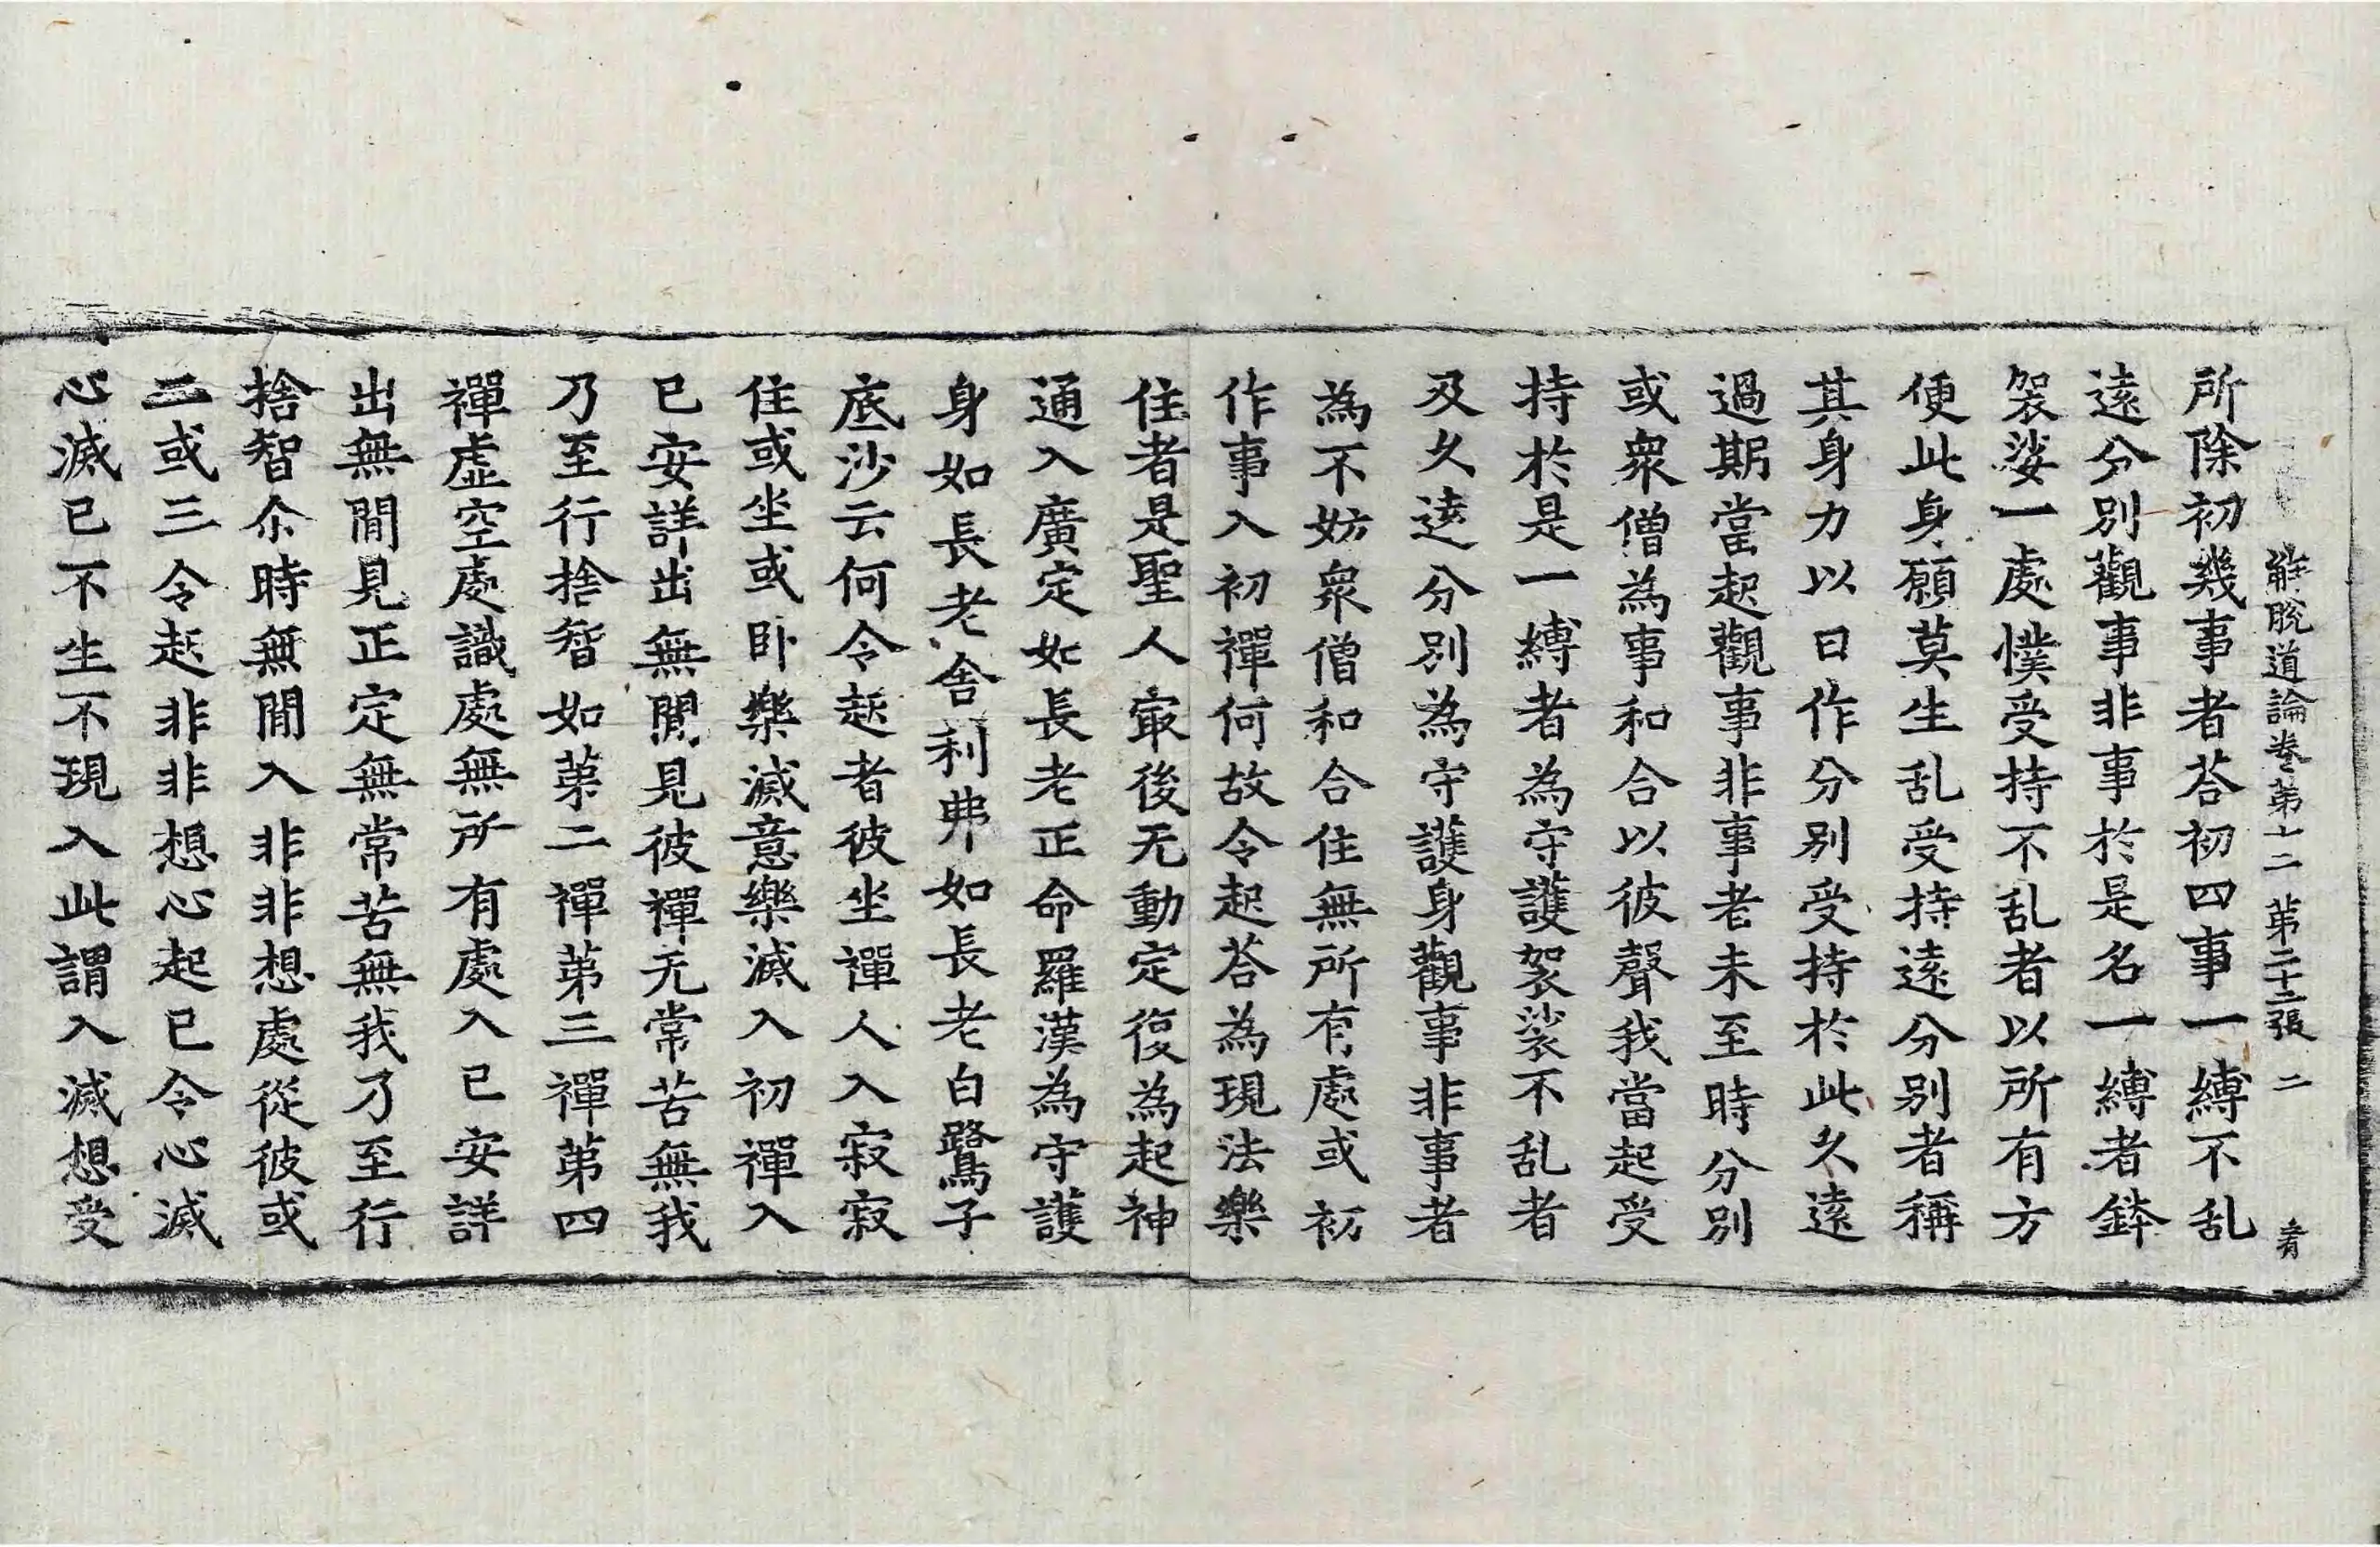 解脫道論卷第十二 第二十二張 二 𬛸
所除初幾事者荅初四事一縛不乱
遠分別觀事非事於是名一縛者鉢
袈裟一處僕受持不乱者以所有方
便此身願莫生乱受持遠分別者稱
其身力以日作分別受持於此久遠
過期當起觀事非事者未至時分別
或衆僧為事和合以彼聲我當起受
持於是一縛者為守護袈裟不乱者
及久遠分別為守護身觀事非事者
為不妨衆僧和合住無所有處或初
作事入初禪何故令起荅為現法樂
住者是聖人㝡後无動定復為起神
通入廣定如長老正命羅漢為守護
身如長老舍利弗如長老白鷺子
底沙云何令起者彼坐禪人入寂寂
住或坐或卧樂滅意樂滅入初禪入
已安詳出無閒見彼禪无常苦無我
乃至行捨智如第二禪第三禪第四
禪虛空處識處無所有處入已安詳
出無閒見正定無常苦無我乃至行
捨智尒時無閒入非非想處從彼或
二或三令起非非想心起已令心滅
心滅已不生不現入此謂入滅想受